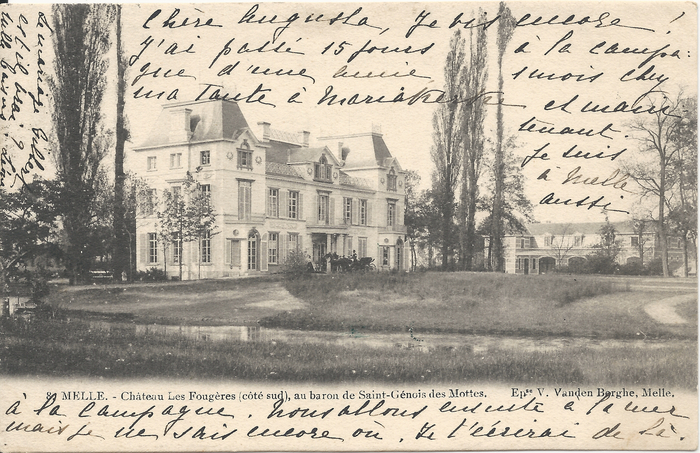 Chère Augusta, Je vis encore!
J'ai passé 15 jours à la campa-
gne d'une amie 1 mois chez
ma tante à Mariakerke et main
tenant.
Je suis
à Melle
aussi
8. MELLE. - Château Les Fougères (côté sud), au baron de Saint-Génois des Mottes. Epse V. Vanden Borghe, Melle.
à la campagne. Nous allons ensuite à la mer
mais je ne sais encore où. Je t'écrirai de là.